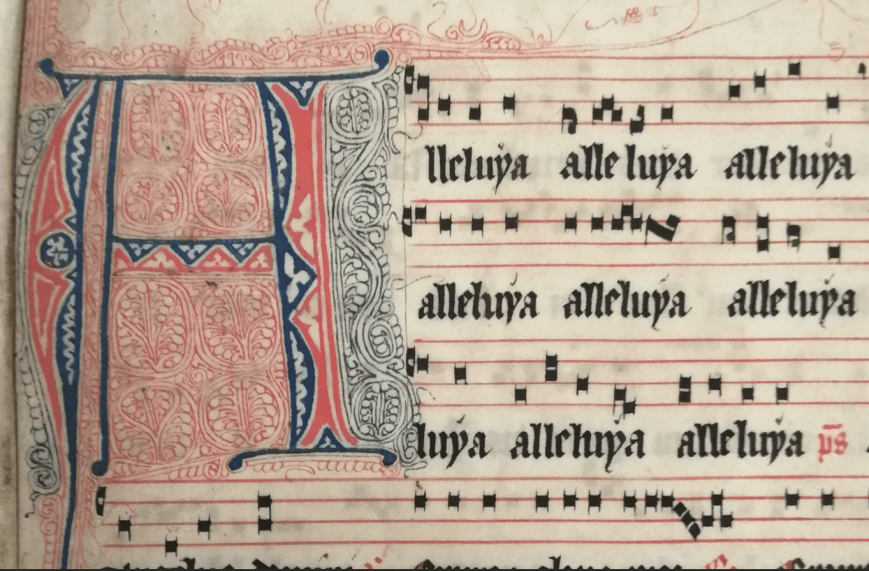 Alleluya alleluya alleluya
alleluya alleluya alleluya
luya alleluya alleluya p̄s